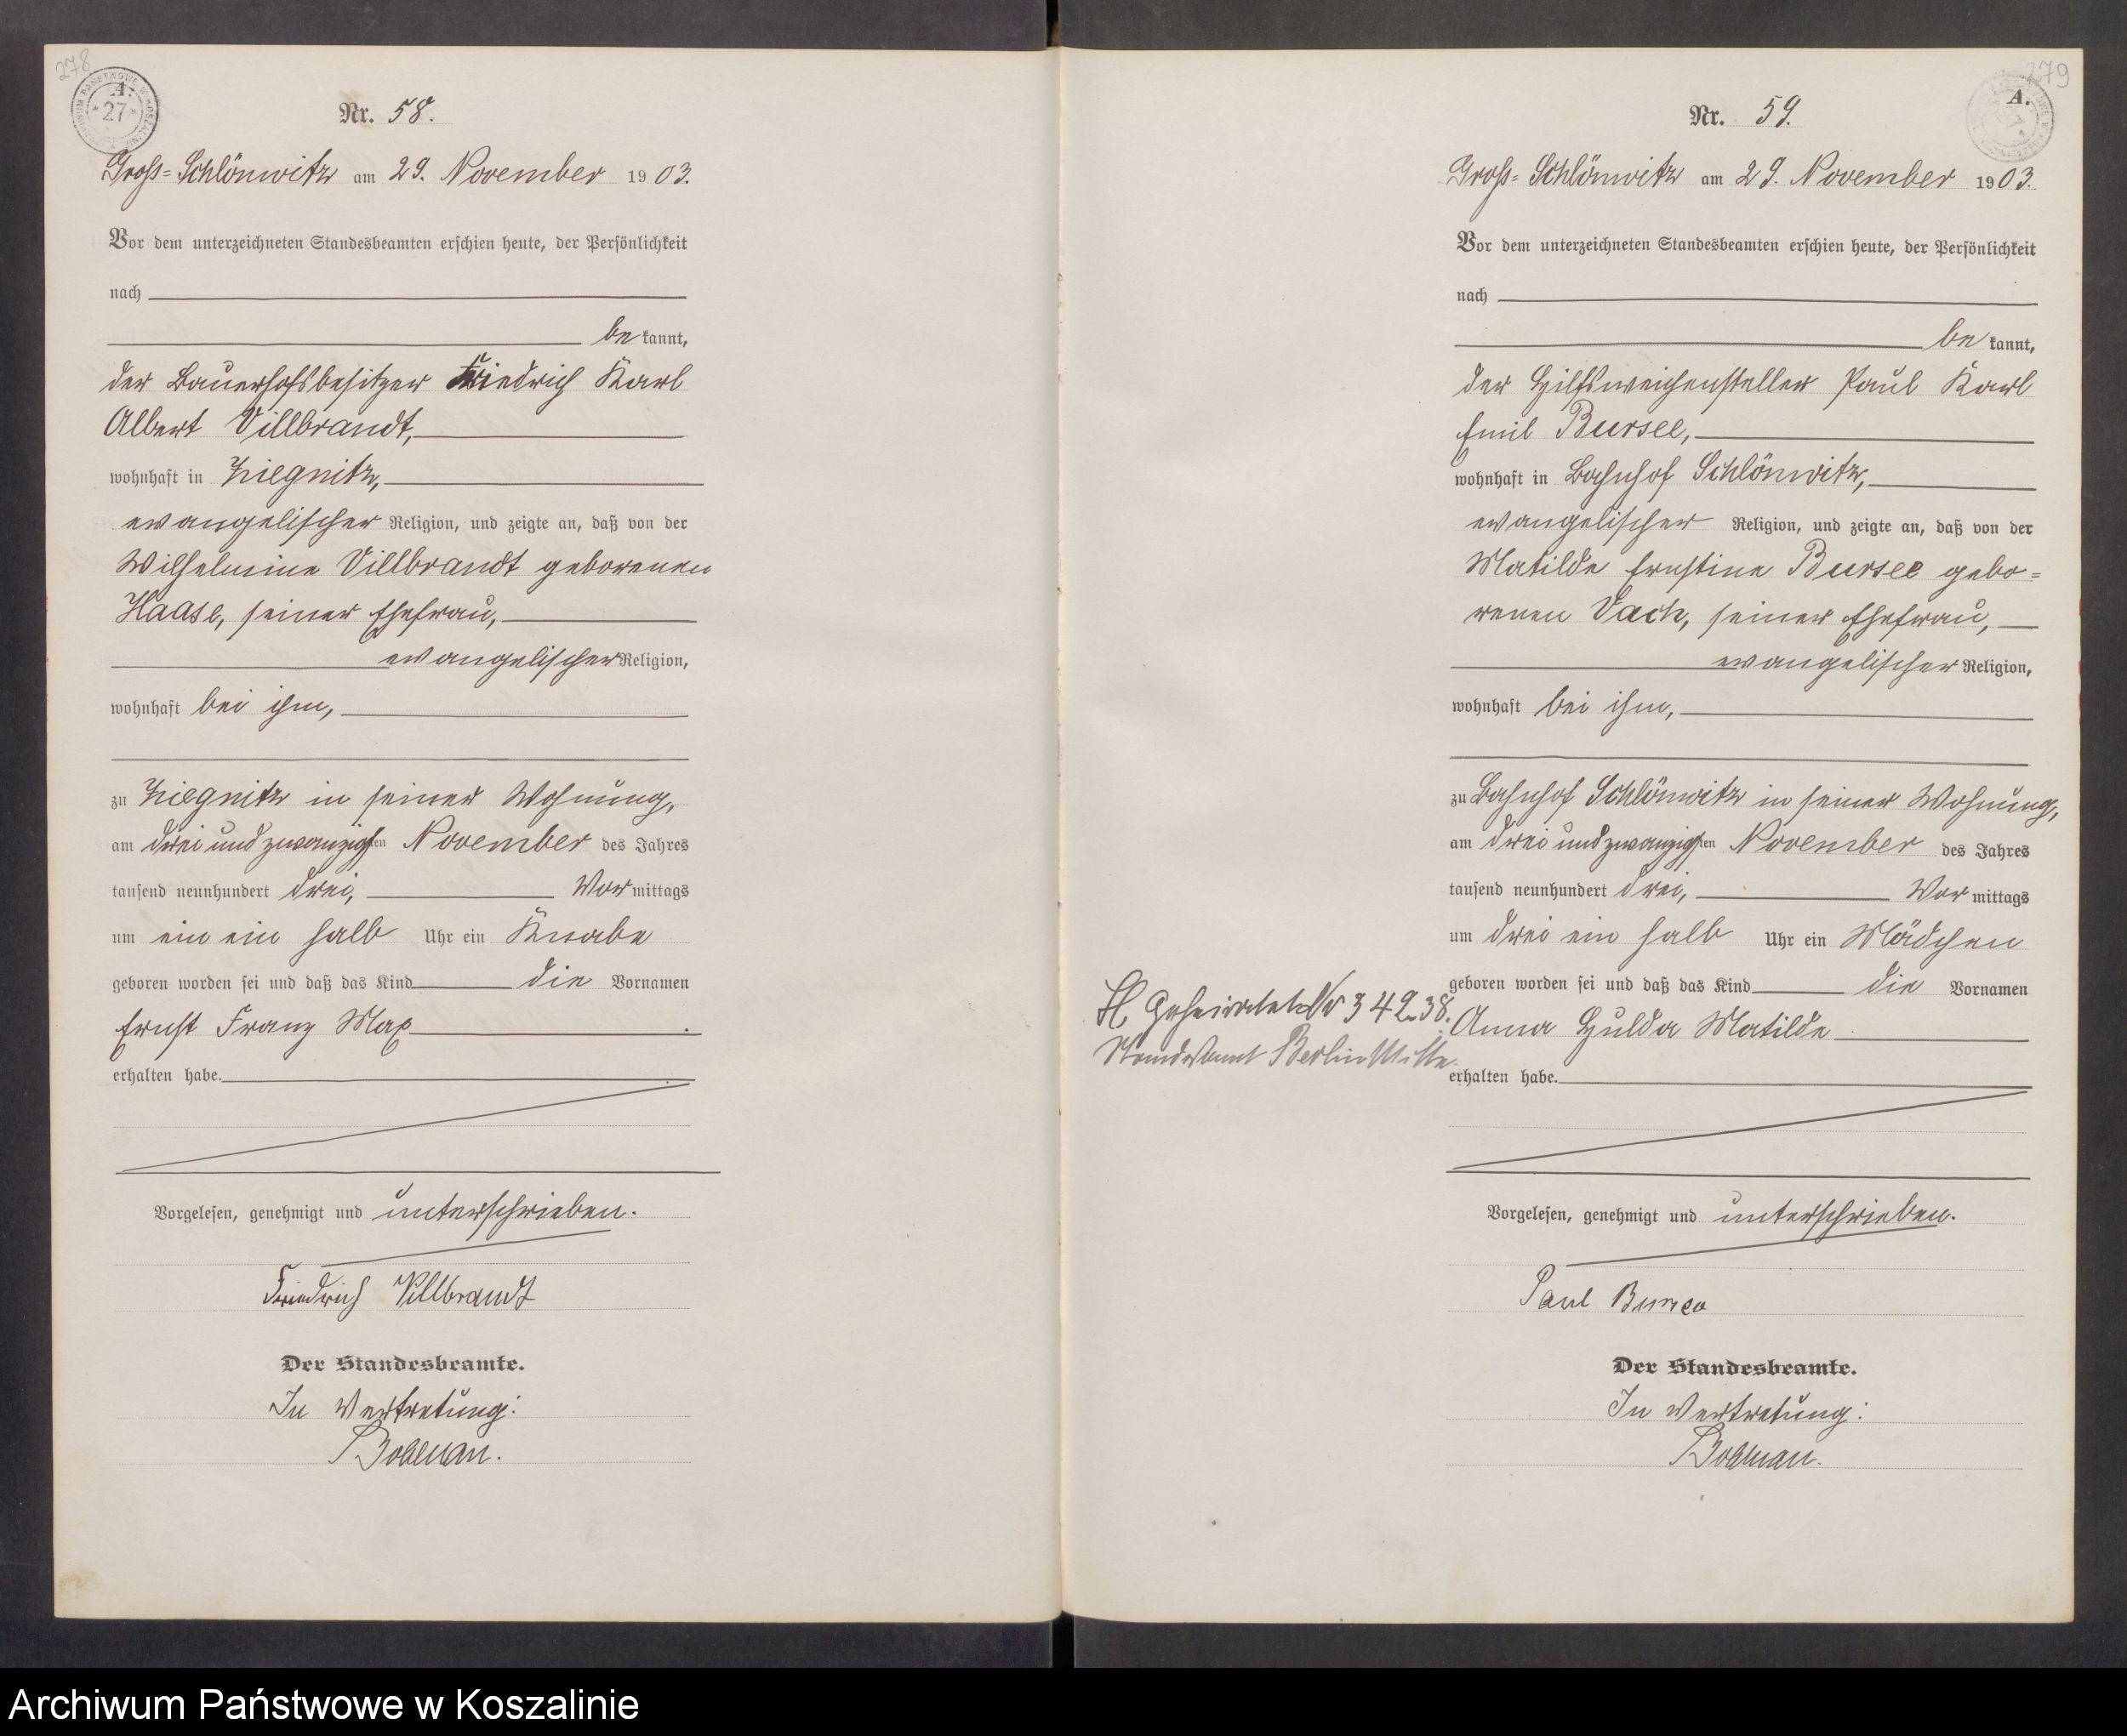 278
ARCHIWUM PAŃSTWOWE W KOSZALINIE
A.
27
Nr. 58.
Gross=Schlönwitz am 29. November 1903.
Vor dem unterzeichneten Standesbeamten erschien heute, der Persönlichkeit
nach
be kannt,
der Bauerhofsbesitzer Friedrich Karl
Albert Villbrandt,
wohnhaft in Ziegnitz,
evangelischer Religion, und zeigte an, daß von der
Wilhelmine Villbrandt geborenen
Haase, seiner Ehefrau,
evangelischer Religion,
wohnhaft bei ihm,
zu Ziegnitz in seiner Wohnung,
am dreiundzwanzigsten November des Jahres
tausend neunhundert drei, Vor mittags
um ein ein halb Uhr ein Knabe
geboren worden sei und daß das Kind die Vornamen
Ernst Franz Max
erhalten habe.
Vorgelesen, genehmigt und unterschrieben.
Friedrich Villbrandt
Der Standesbeamte.
In Vertretung:
279
A.
Nr. 59.
Gross=Schlönwitz am 29. November 1903.
Vor dem unterzeichneten Standesbeamten erschien heute, der Persönlichkeit
nach
be kannt,
der Hilfsweichensteller Paul Karl
Emil Bursee,
wohnhaft in Bahnhof Schlönwitz,
evangelischer Religion, und zeigte an, daß von der
Matilde Ernstine Bursee gebo=
renen Vach, seiner Ehefrau,
evangelischer Religion,
wohnhaft bei ihm,
zu Bahnhof Schlönwitz in seiner Wohnung,
am dreiundzwanzigsten November des Jahres
tausend neunhundert drei, Vor mittags
um drei ein halb Uhr ein Mädchen
geboren worden sei und daß das Kind die Vornamen
Anna Hulda Matilde
erhalten habe.
Geheiratet Nr 342.38.
Standesamt Berlin Mitte.
Vorgelesen, genehmigt und unterschrieben.
Paul Bursee
Der Standesbeamte.
In Vertretung:
Archiwum Państwowe w Koszalinie